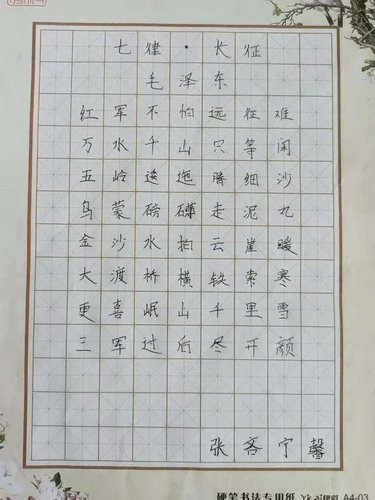 七律·长征
毛泽东
红军不怕远征难
万水千山只等闲
五岭逶迤腾细沙
乌蒙磅礴走泥丸
金沙水拍云崖暖
大渡桥横铁索寒
更喜岷山千里雪
三军过后尽开颜
张宁馨
硬笔书法专用纸 A4-03